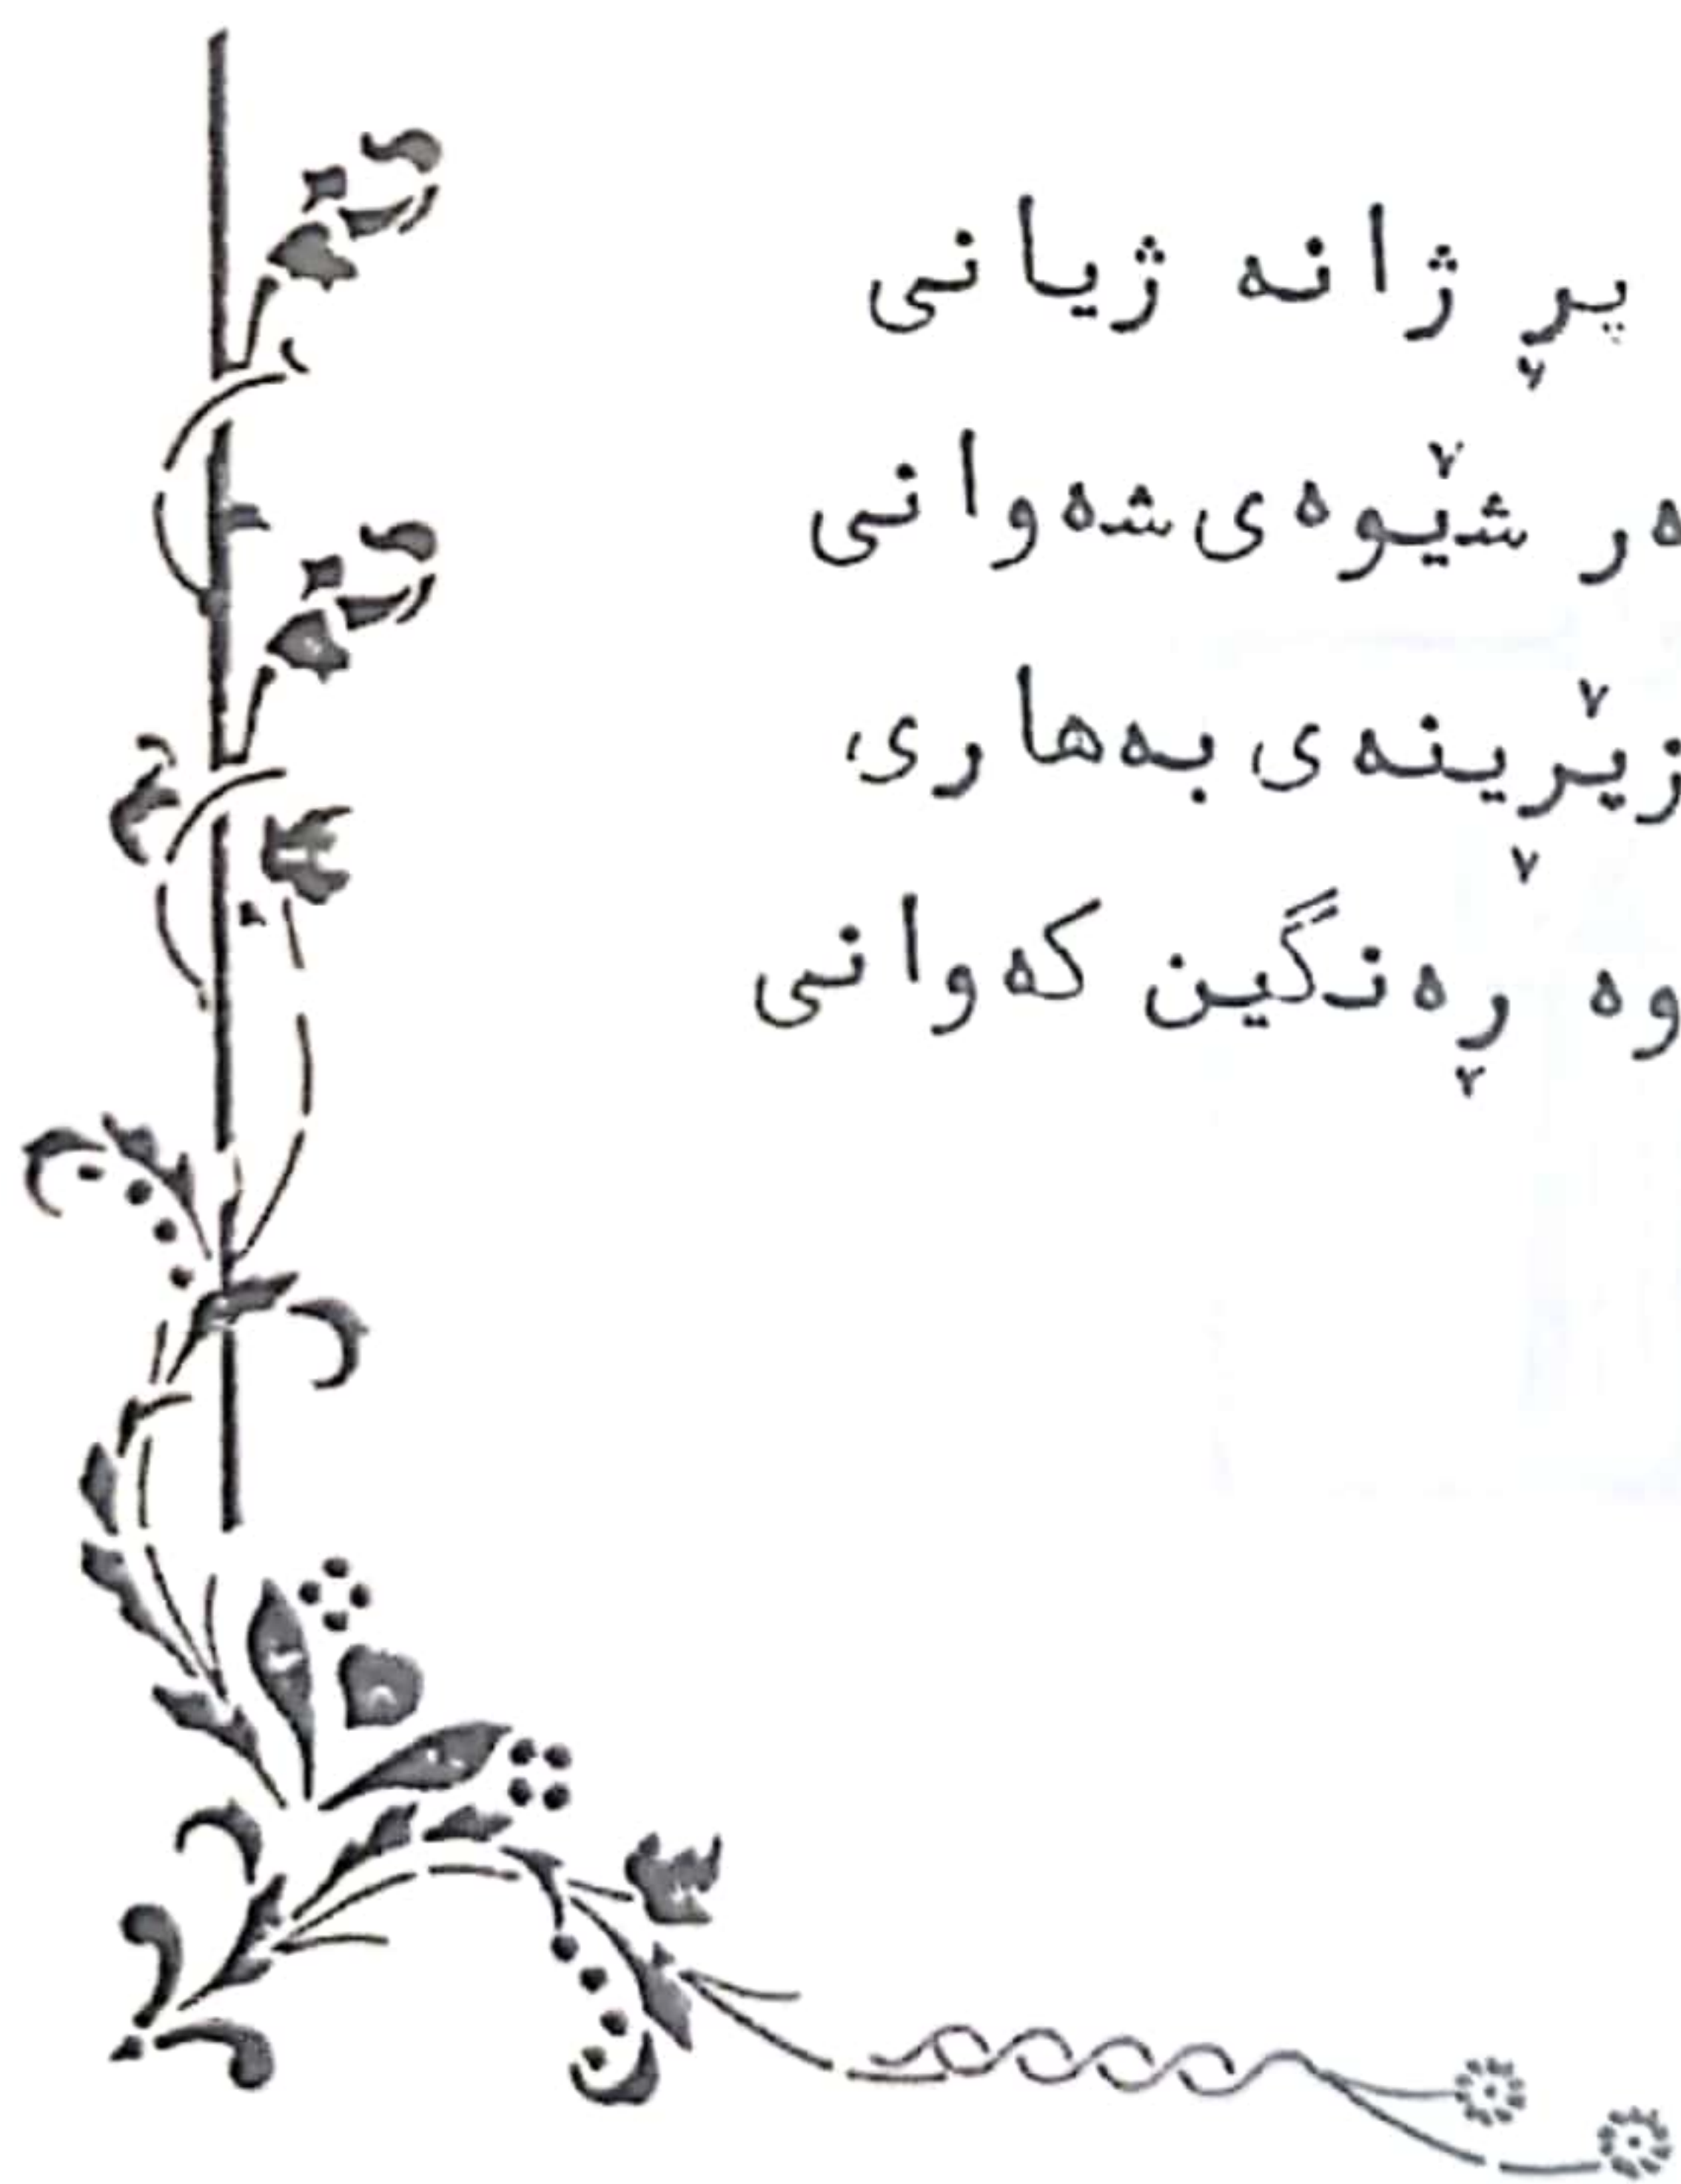 پڕ ژانە ژیانی
ەر شێوەی شەوانی
زێڕینەی بەهاری
وە ڕەنگین کەوانی